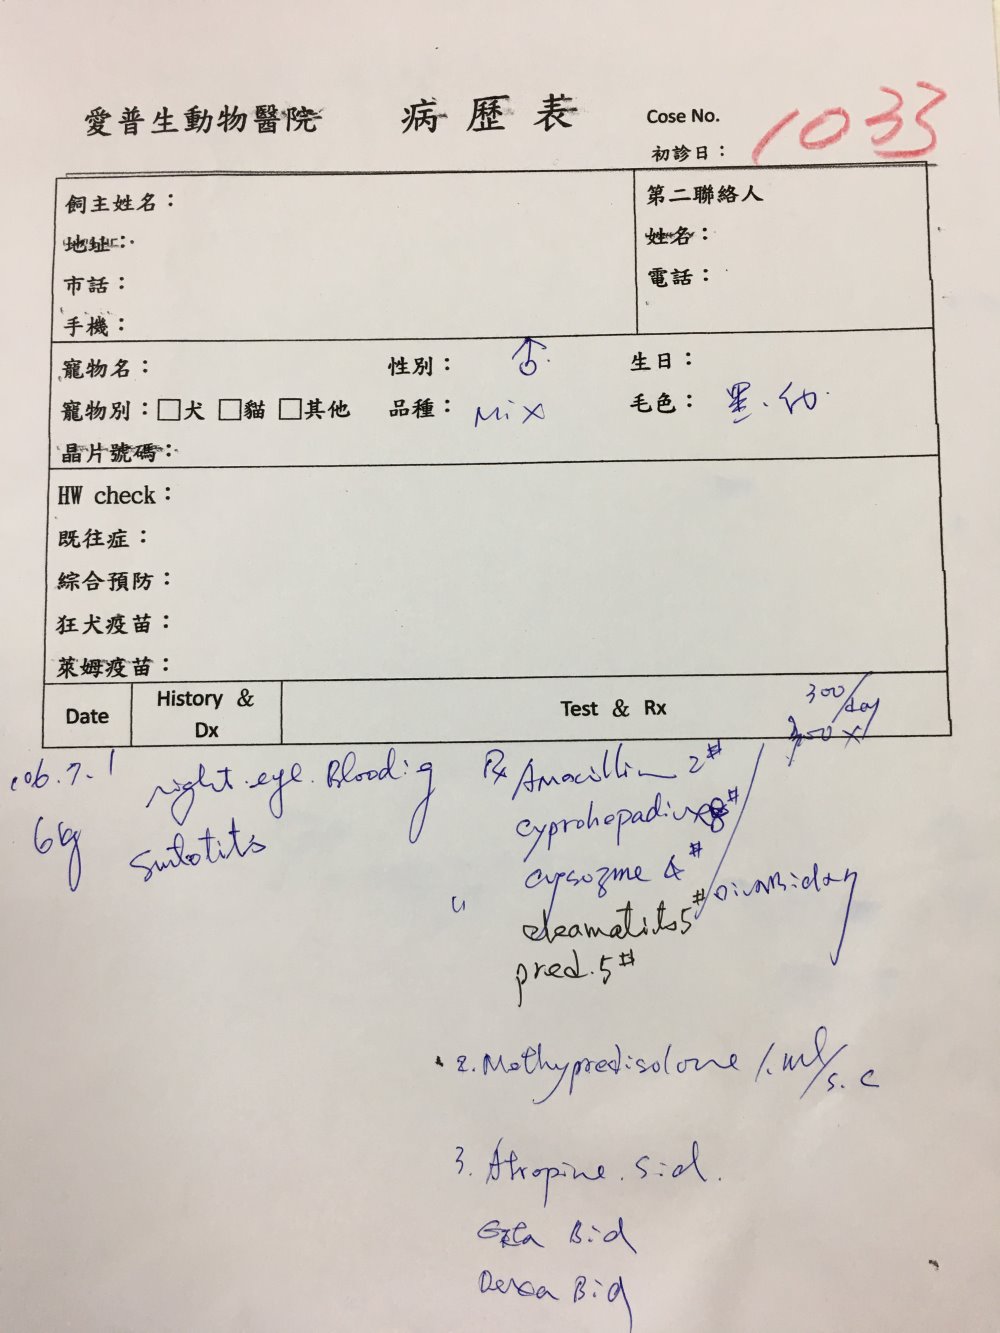 愛普生動物醫院 病歷表 Cose No. 1033
初診日：
飼主姓名：
地址：
市話：
手機：
第二聯絡人
姓名：
電話：
寵物名： 性別： ♂ 生日：
寵物別：□犬 □貓 □其他 品種： Mix 毛色： 黑.
晶片號碼：
HW check：
既往症：
綜合預防：
狂犬疫苗：
萊姆疫苗：
Date History & Dx Test & Rx
300/day
106.7.1 right.eye.Blooding Rx Amocillin 2#
6kg cyprohepadine 8#
cysozme 4#
5#
pred. 5#
2. Mothypredisolone 1.ml/s.c
3. Atropine. Sid.
Gta Bid
Dexa Bid